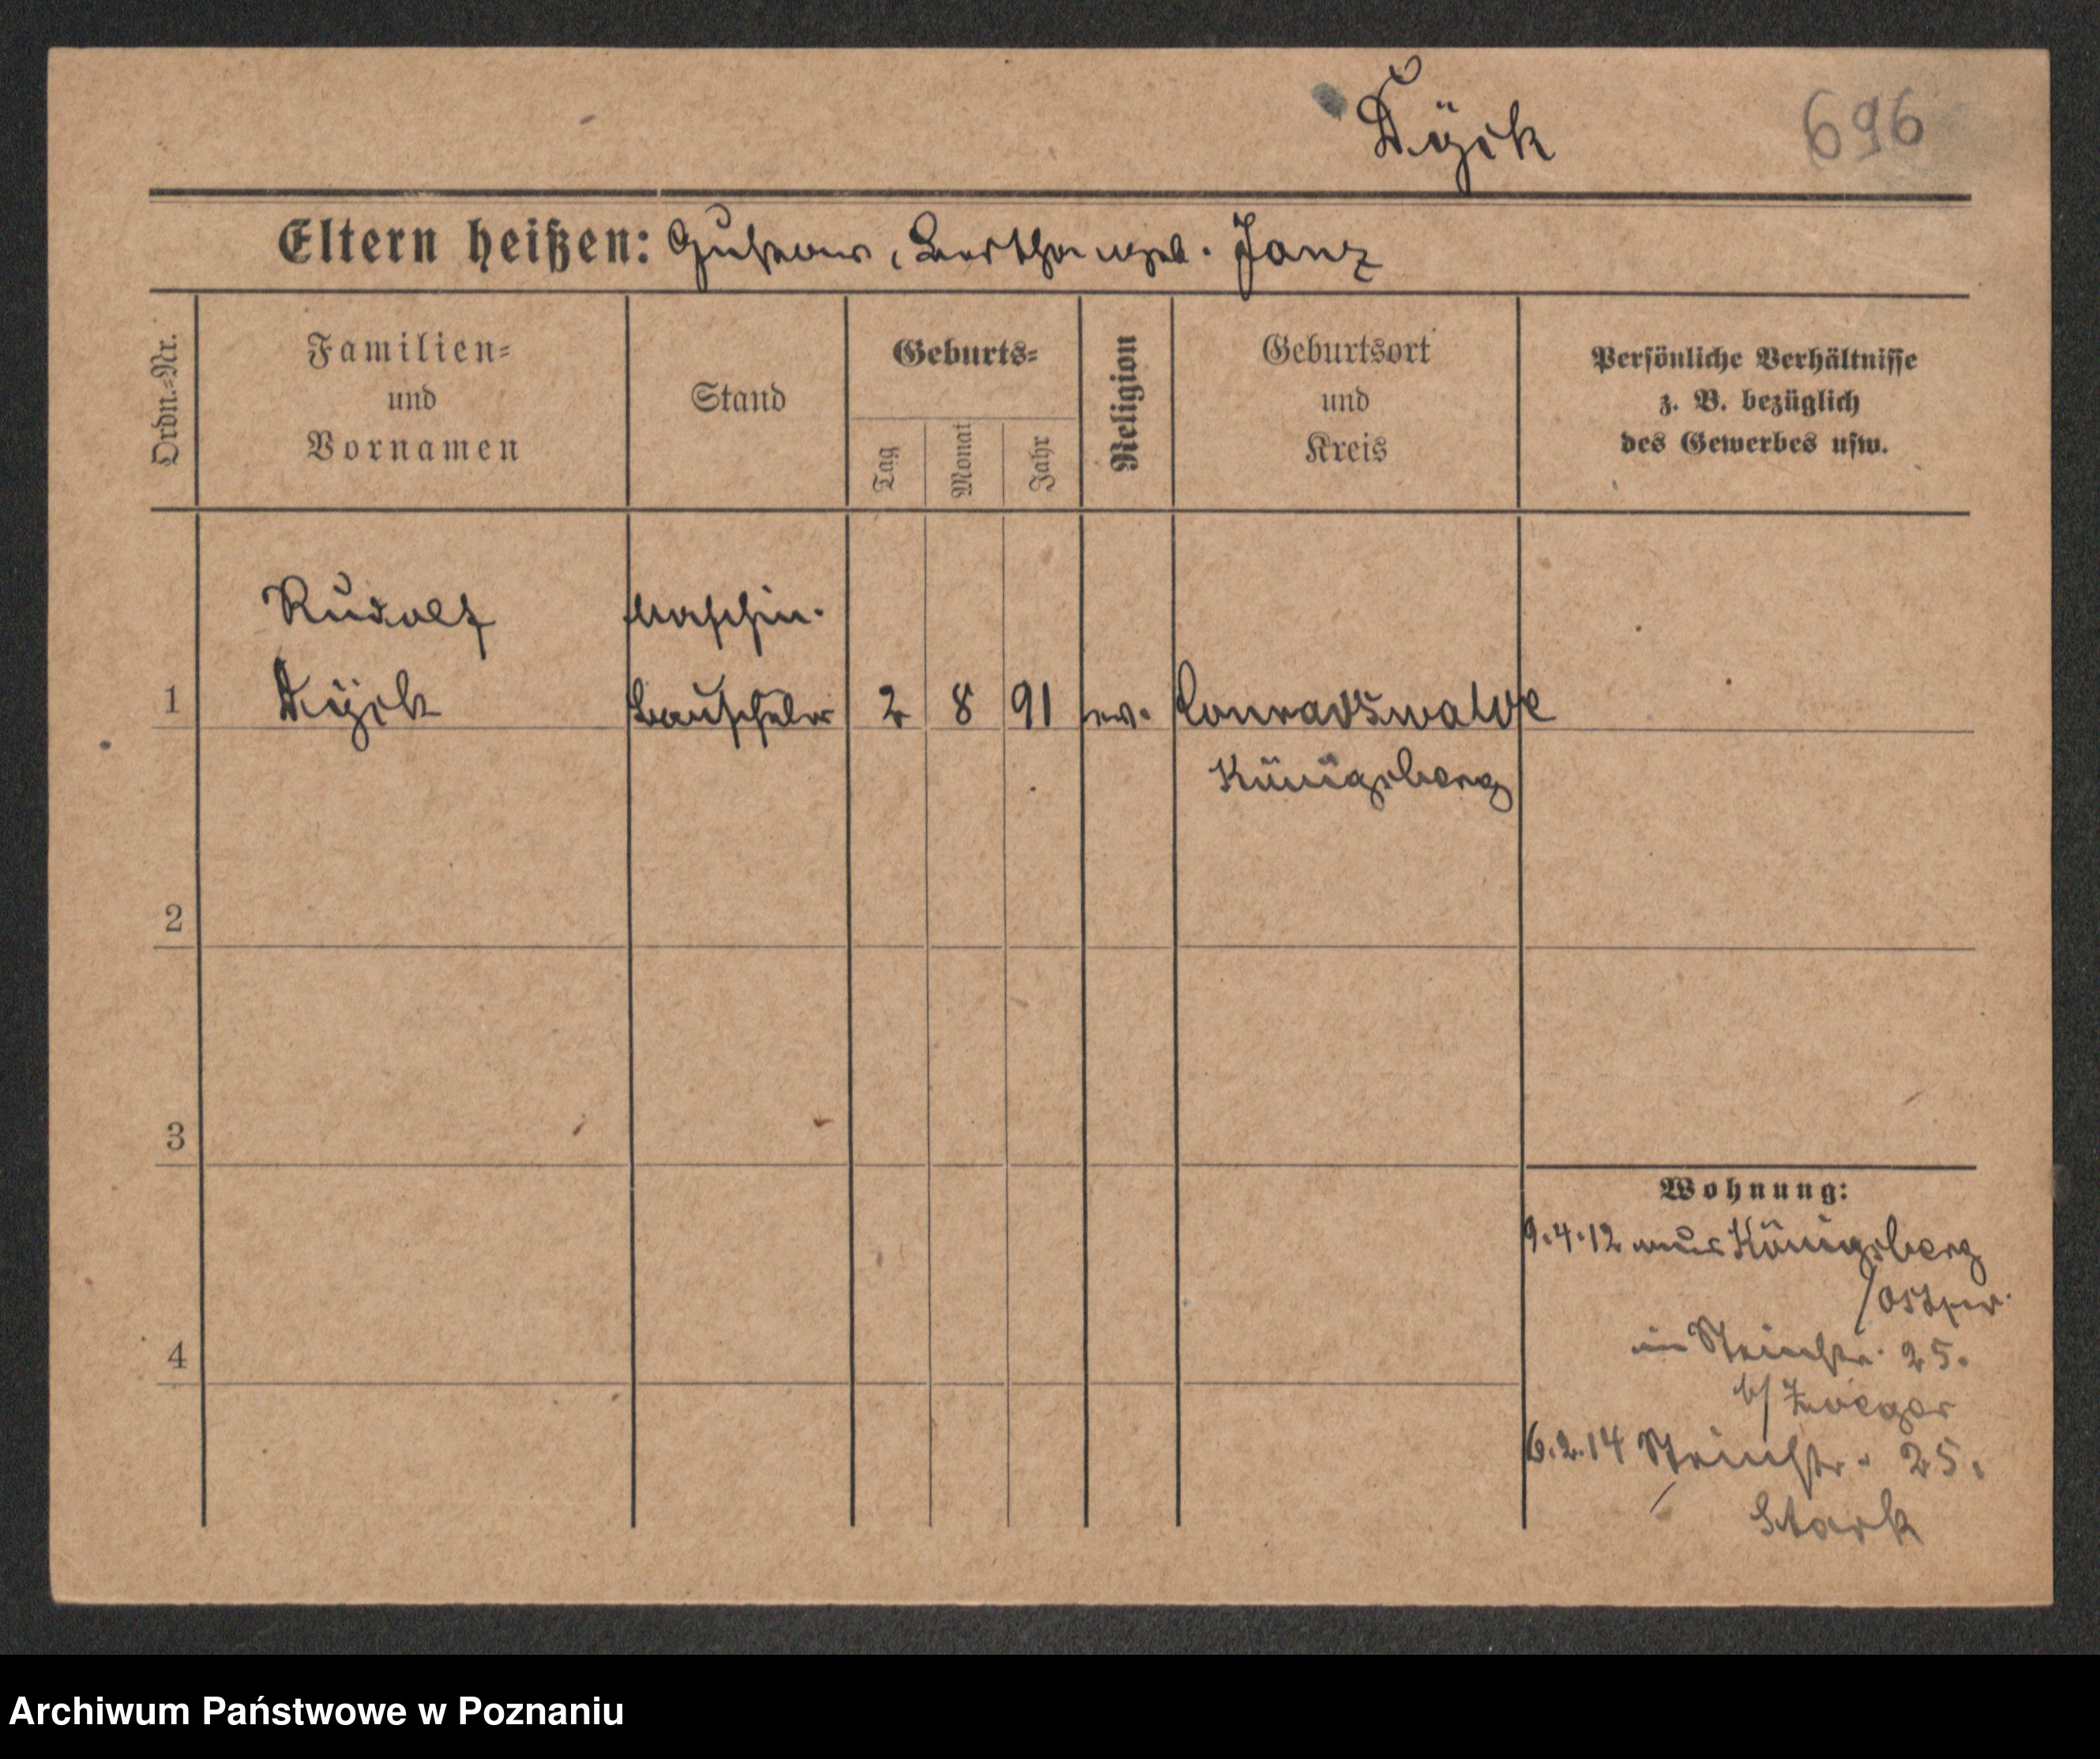 Dÿck
696
Eltern heißen: Gustav, Bertha geb. Janz
Ordn.-Nr.
Familien-
und
Vornamen
Stand
Geburts-
Tag
Monat
Jahr
Religion
Geburtsort
und
Kreis
Persönliche Verhältnisse
z. B. bezüglich
des Gewerbes usw.
Rudolf
Maschin.
1
Dÿck
Bauschüler
2
8
91
ev.
Conradswalde
Königsberg
2
3
4
Wohnung:
9.4.12 aus Königsberg
/Ostpr.
in Steinstr. 25.
b/
6.2.14 Steinstr. 25.
Stark
Archiwum Państwowe w Poznaniu